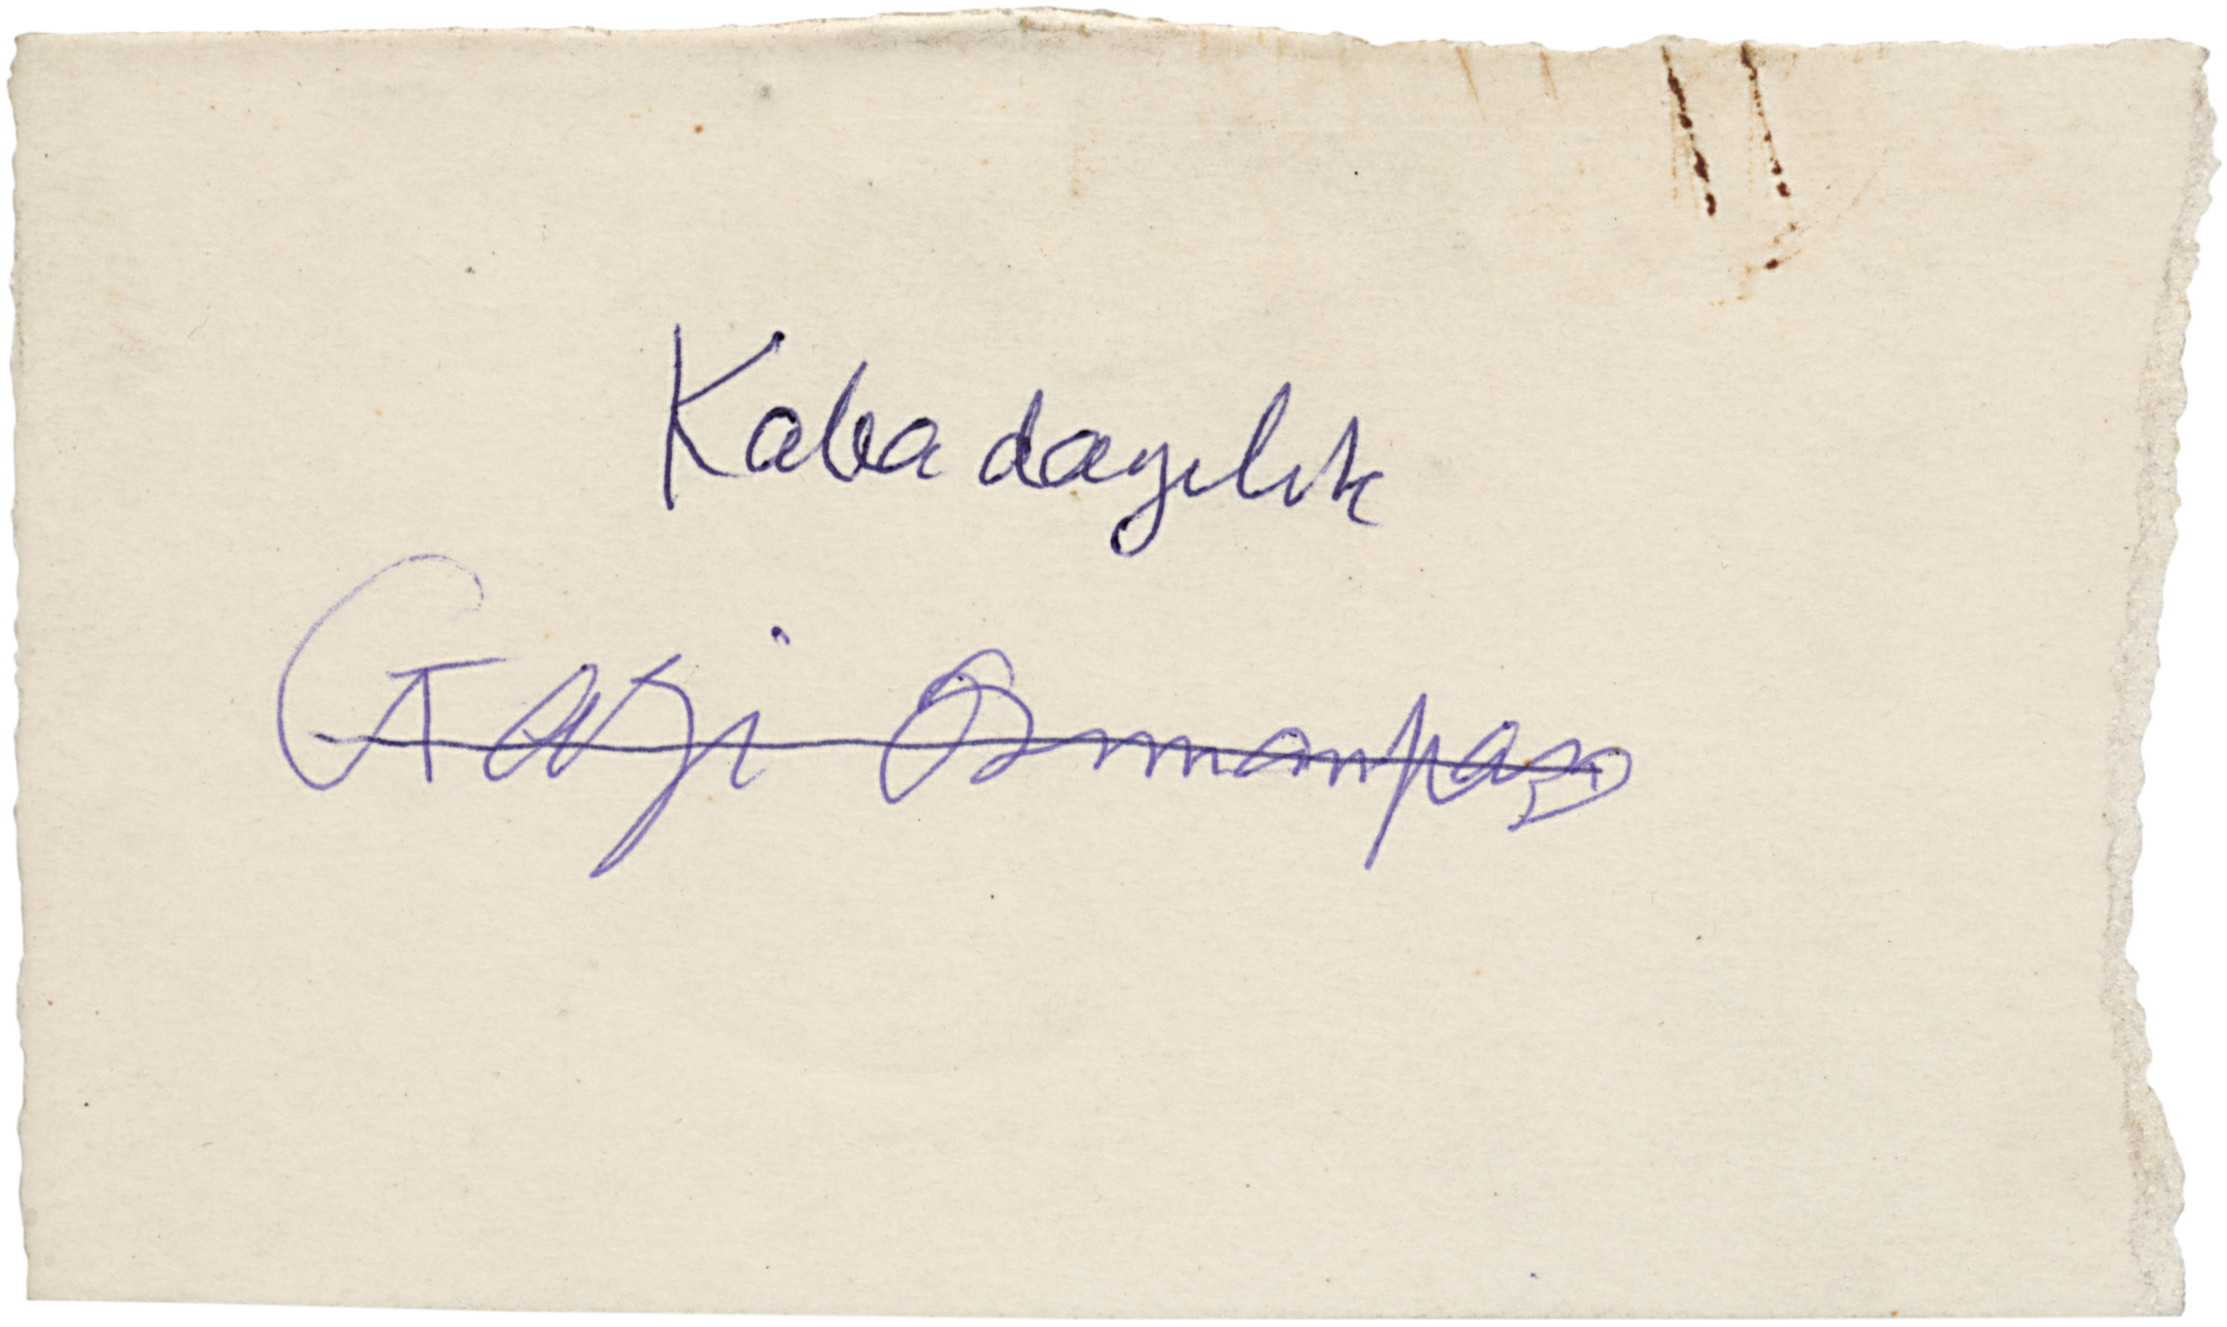 Kabadayılık
Gazi Osmanpaşa